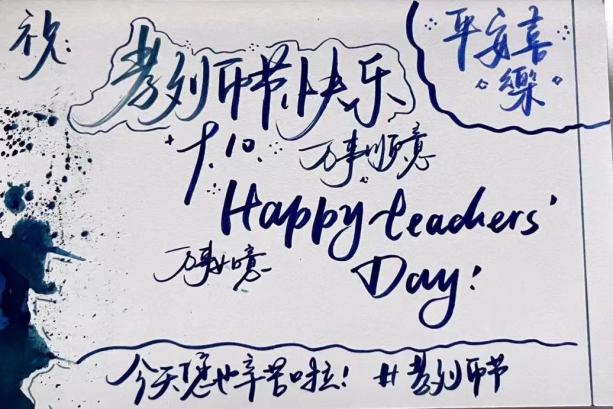 祝:
教师节快乐
平安喜
樂
9.10.
万事顺意
Happy teachers'
万事如意
Day!
今天您也辛苦啦! #教师节